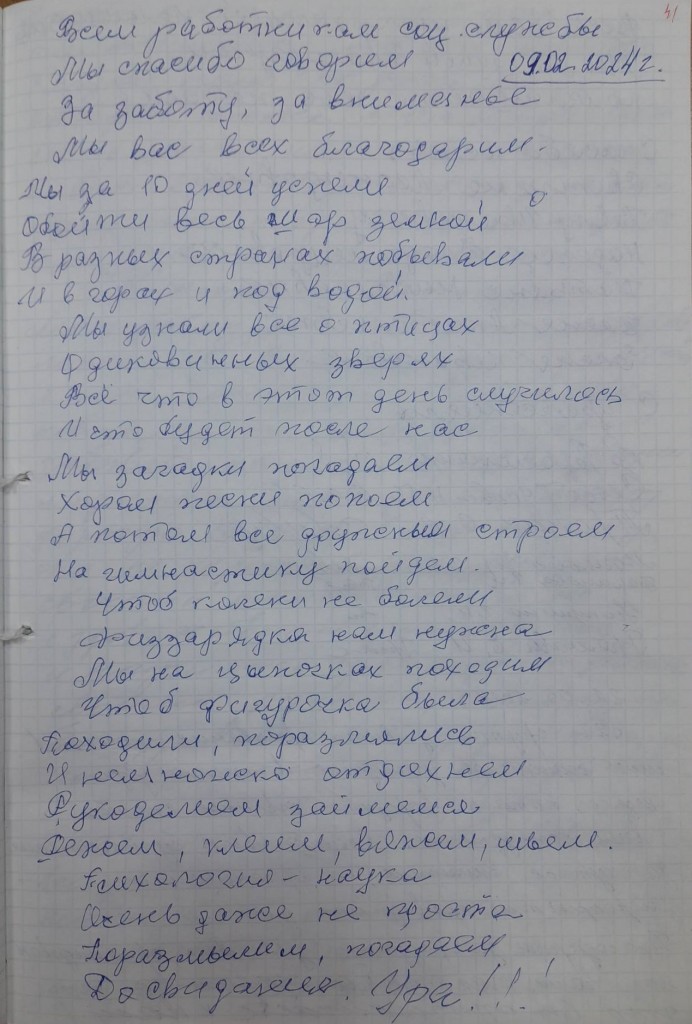 41
Всем работникам соц. службы
Мы спасибо говорим
09.02.2024 г.
За заботу, за вниманье
Мы вас всех благодарим.
Мы за 10 дней успели
Обойти весь шар земной
В разных странах побывали
И в горах и под водой.
Мы узнали все о птицах
О диковинных зверях
Всё что в этот день случилось
И что будет после нас
Мы загадки погадаем
Хором песни попоем
А потом все дружным строем
На гимнастику пойдем.
Чтоб колени не болели
Физзарядка нам нужна
Мы на цыпочках походим
Чтоб фигурочка была
Походили, поразмялись
И немножко отдохнем
Рукоделием займемся
Режем, клеим, вяжем, шьем.
Психология - наука
Очень даже не проста
Поразмыслим, погадаем
До свидания. Ура!!!